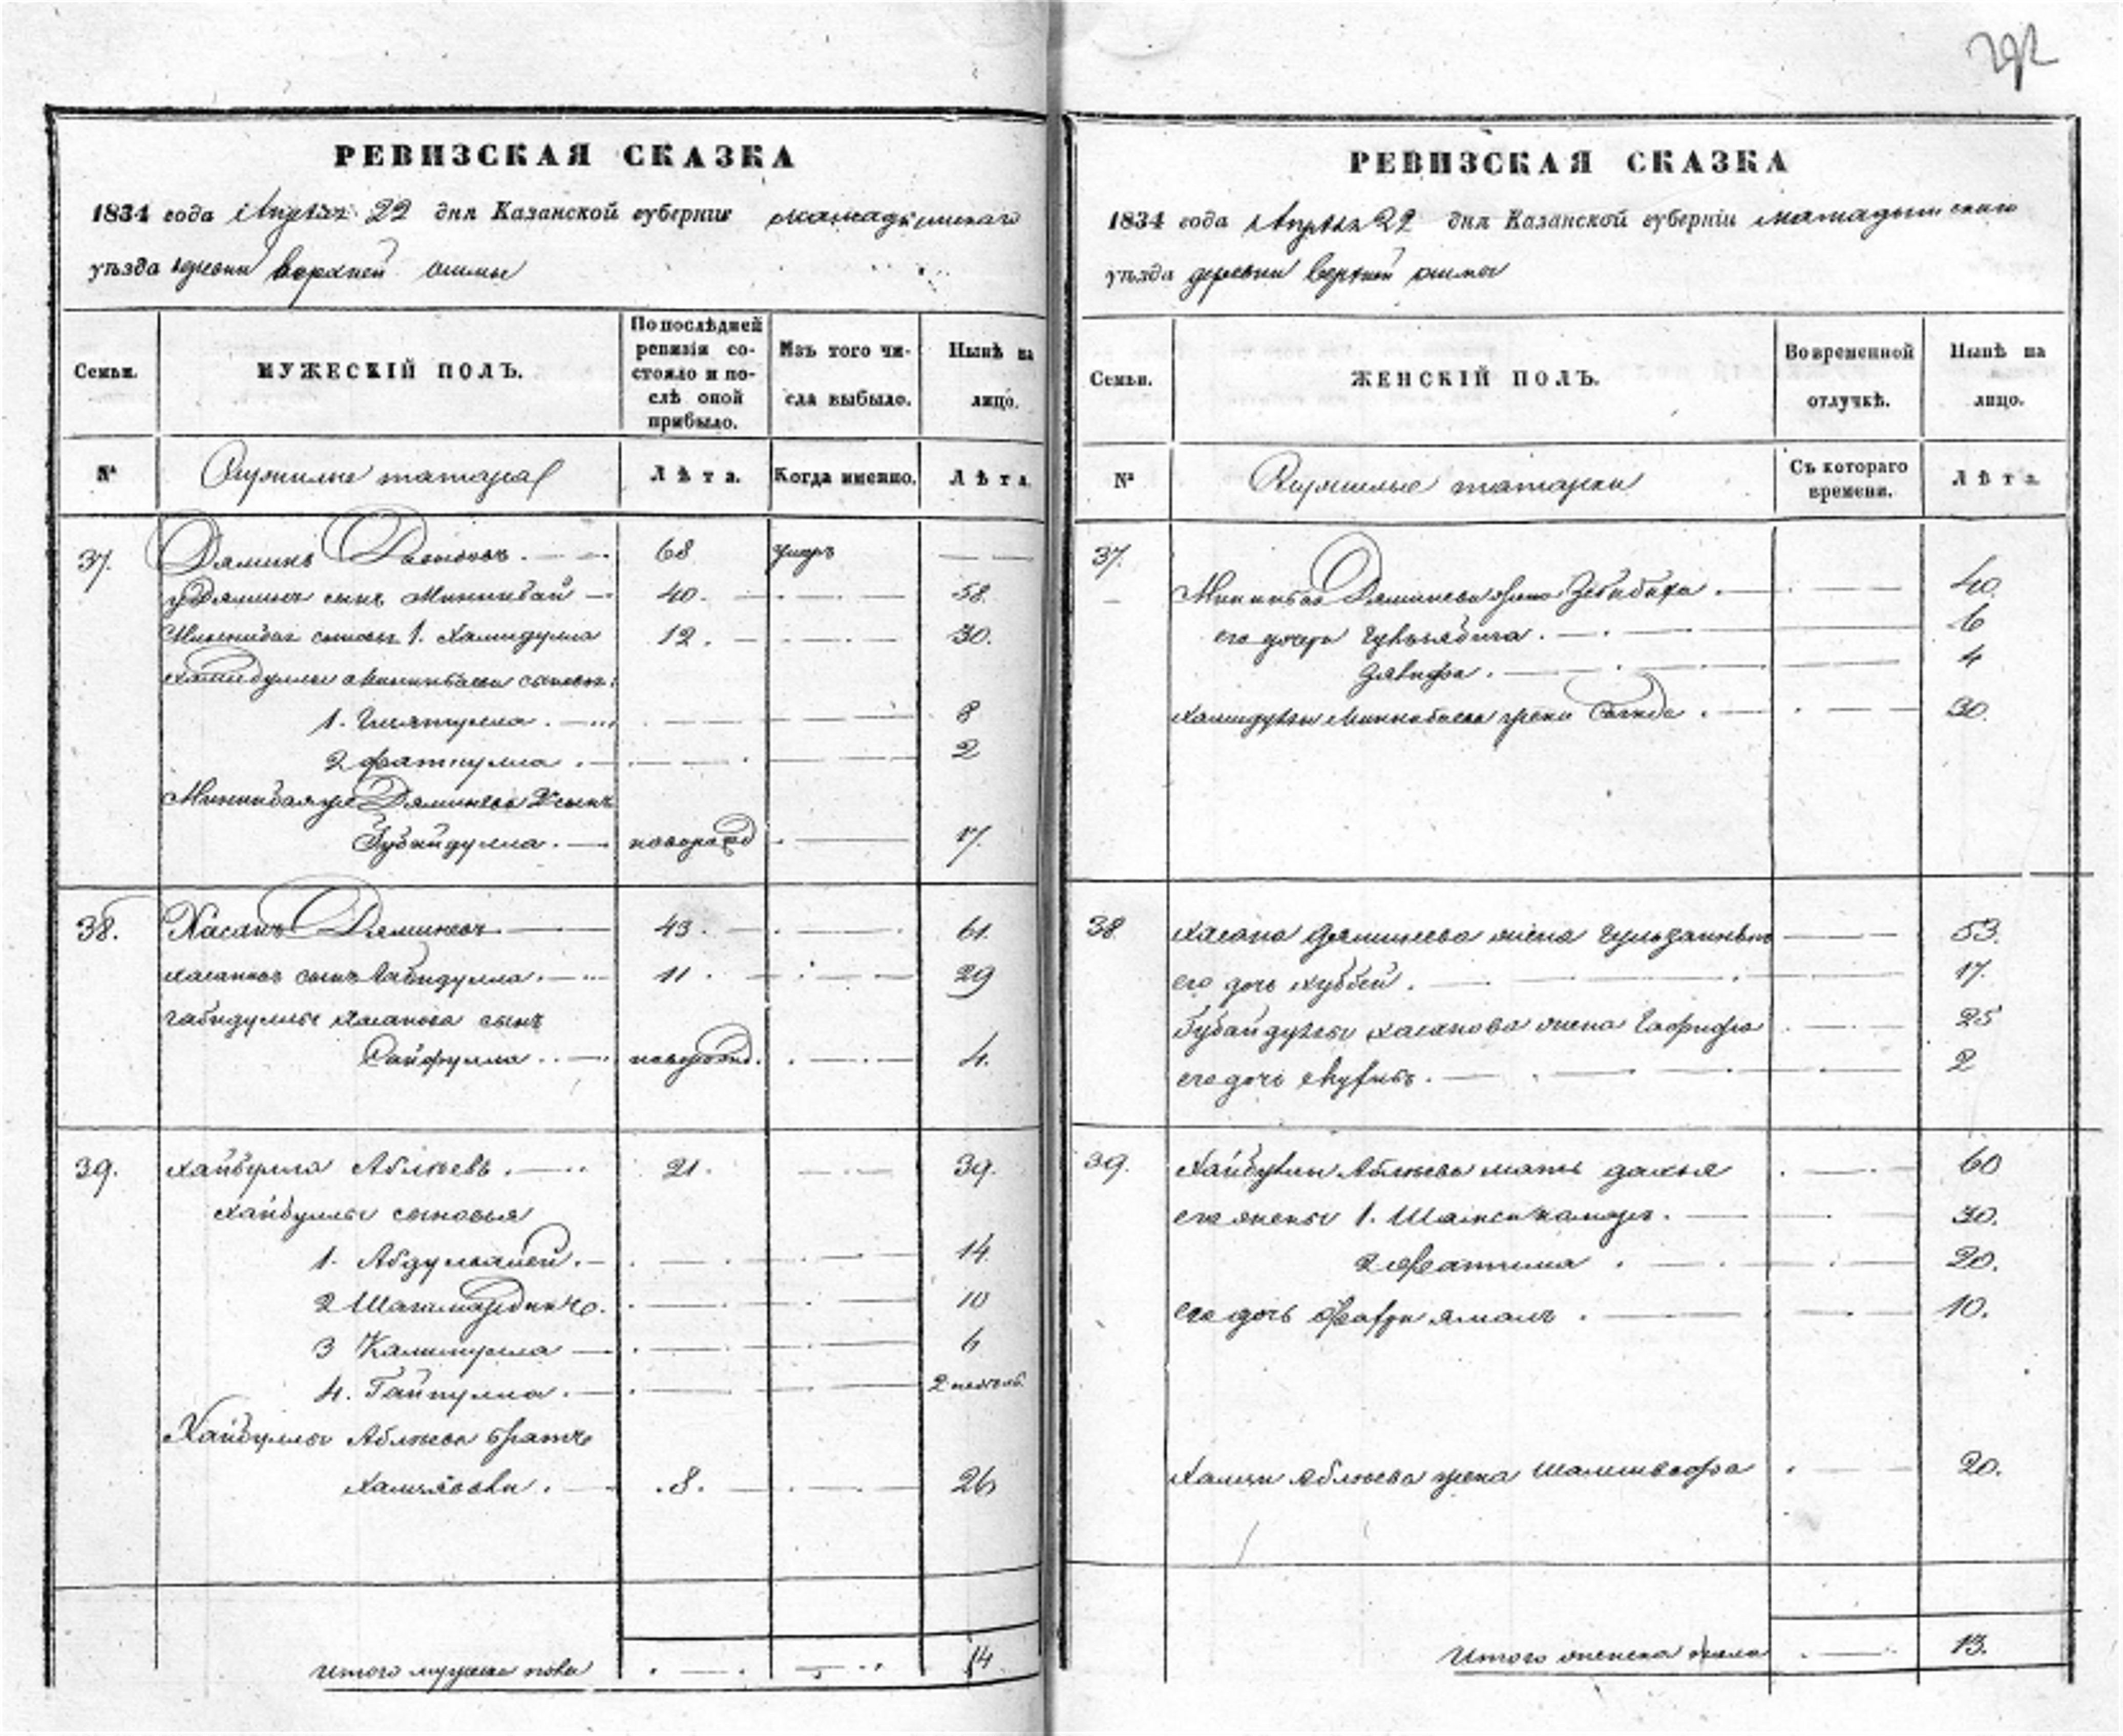 292
РЕВИЗСКАЯ СКАЗКА
1834 года Апреля 22 дня Казанской губернии мамадышскаго
уѣзда деревни верхней ошмы
Семьи. МУЖЕСКІЙ ПОЛЪ. По послѣдней ревизіи состояло и послѣ оной прибыло. Изъ того числа выбыло. Нынѣ на лицо.
№ Служилые татара Лѣта. Когда именно. Лѣта.
37. Дяминъ 68 умръ
Дяминъ сынъ Миннибай 40. 58.
Миннибая сыновья 1. Хамидулла 12. 30.
Хамидуллы Миннибаева сыновья:
1. 8
2 Фаткулла. 2
Миннибая же Дяминева 2 сынъ
Губайдулла. новорожд 17.
38. Хасанъ Дяминевъ. 43. 61.
Хасановъ сынъ Габидулла. 11. 29
Габидуллы Хасанова сынъ
Сайфулла. новорожд. 4.
39. Хайбулла Аблясевъ. 21. 39.
Хайбуллы сыновья
1. 14.
2 10
3 Калимулла 6
4. Гайнулла. 2 недель
Хайбуллы Аблясева братъ
8. 26
Итого мужеска пола 14
РЕВИЗСКАЯ СКАЗКА
1834 года Апреля 22 дня Казанской губерніи мамадышскаго
уѣзда деревни верхней ошмы
Семьи. ЖЕНСКІЙ ПОЛЪ. Во временной отлучкѣ. Нынѣ на лицо.
№ Служилые татарки Съ котораго времени. Лѣта.
37. Миннибая Дяминева жена Зебибяха. 40.
его дочери 6
Зялифа. 4
Хамидуллы Миннибаева жена 30.
38 Хасана Дяминева жена 53.
его дочь Хуббей. 17.
Губайдуллы Хасанова жена Гафифа 25
его дочь 2
39. Хайбуллы Аблясева мать 60
его жены 1. Шамсикамаръ. 30.
2 Фатима 20.
его дочь 10.
Аблясева жена 20.
Итого женска пола 13.